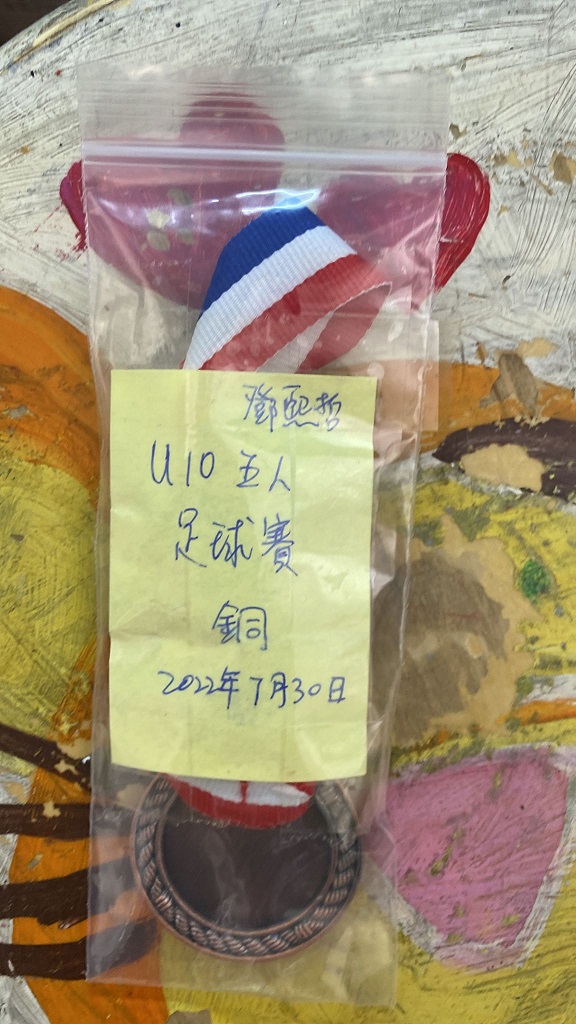 鄧熙哲
U10 五人
足球賽
銅
2022年7月30日